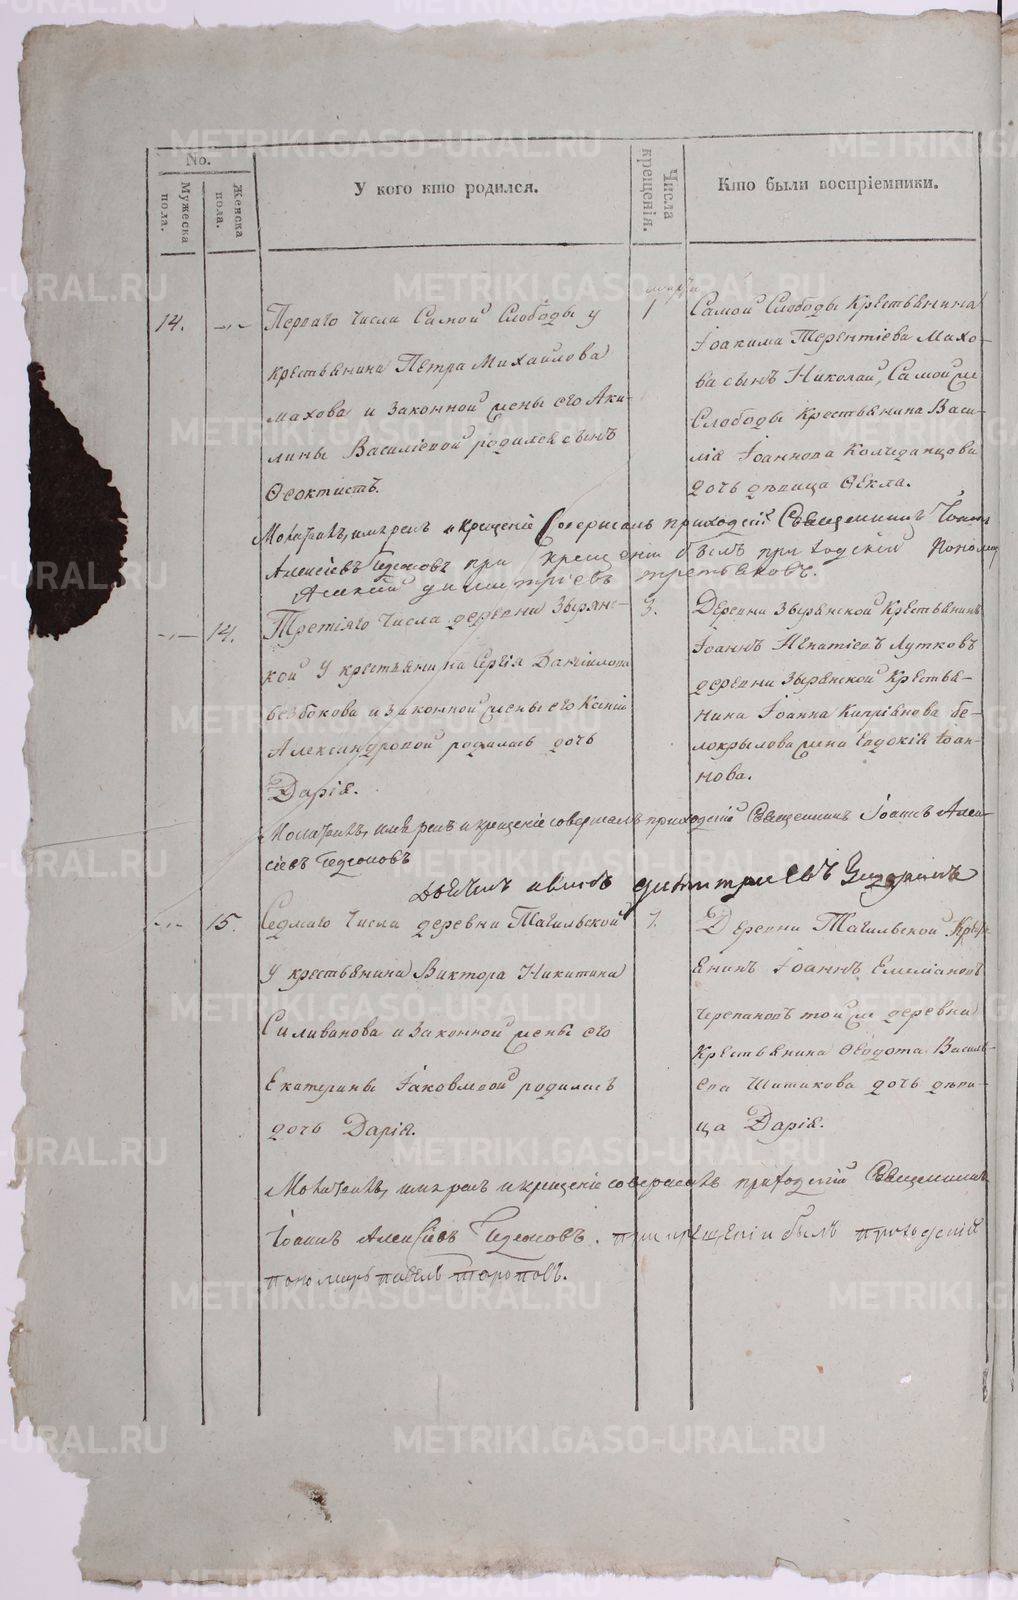 No.
Мужеска пола.
Женска пола.
У кого кто родился.
Числа крещенія.
Кто были воспріемники.
14.
Перваго числа Самой Слободы у
крестьянина Петра Михайлова
махова и законной жены его Аки-
лины Василіевой родился сынъ
Ѳеоктистъ.
марта
1
Самой Слободы Крестьянина
Іоакима Терентіева Махо-
ва сынъ Николай, Самой же
Слободы Крестьянина Васи-
лія Іоаннова Колчеданцова
дочь дѣвица Ѳекла.
Молитвилъ, имярекъ и крещеніе Совершалъ приходскій Священникъ Іоаннъ
Алексіевъ при крещеніи былъ приходскій Пономарь
Алексій димитріевъ третьяковъ.
14.
Третіяго числа деревни Зырян-
кой у крестьянина Сергія Даніилова
безбокова и законной жены его Ксеніи
Александровой родилась дочь
Дарія.
3.
Деревни Зырянской Крестьянинъ
Іоаннъ Игнатіевъ Лутковъ
деревни Зырянской Крестья-
нина Іоанна Кипріянова бе-
локрылова жена Евдокія Іоан-
нова.
Молитвилъ, имярекъ и крещеніе совершалъ приходскій Священникъ Іоаннъ Алек-
сіевъ
дьячекъ димитриевъ
15.
Седмаго числа деревни Тагильской
у крестьянина Виктора Никитина
Силиванова и законной жены его
Екатерины Іаковлевой родилась
дочь Дарія.
7.
Деревни Тагильской Крестья
янинъ Іоаннъ Емеліановъ
Черепановъ той же деревни
Крестьянина Ѳеодота Василь-
ева Шитикова дочь дѣви-
ца Дарія.
Молитвилъ, имярекъ и крещеніе совершалъ приходскій Священникъ
Іоаннъ Алексіевъ при крещеніи былъ приходскій
пономарь павелъ тороповъ.
METRIKI.GASO-URAL.RU